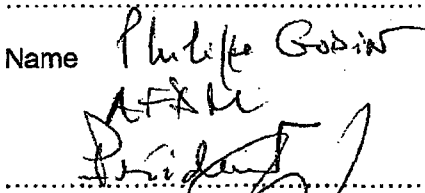 Name Philippe Godin
AFDM
Président